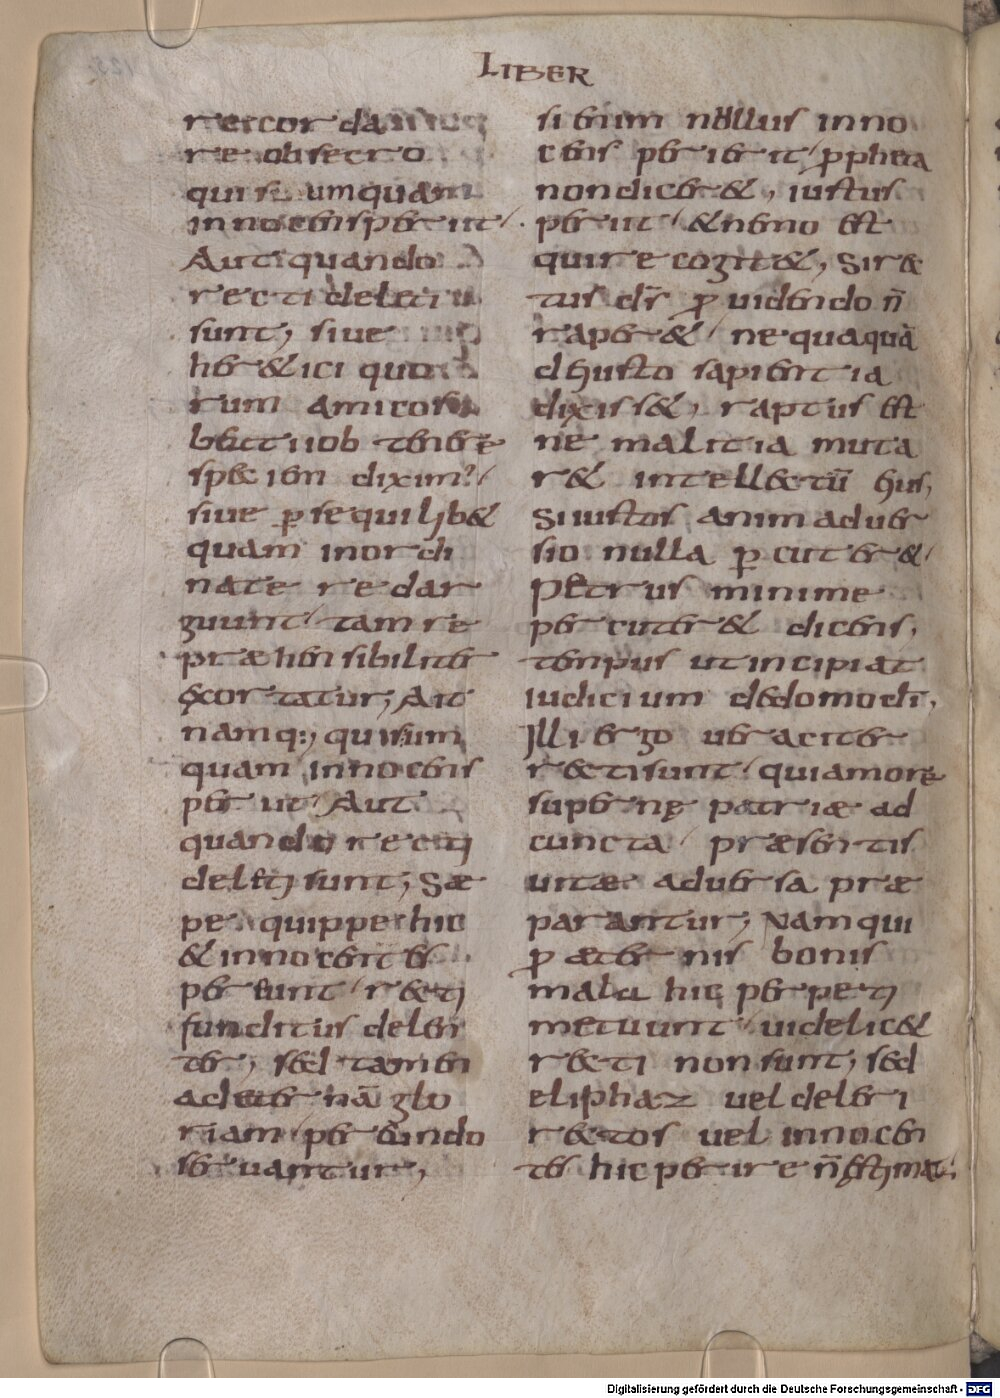 LIBER
recorda
re obsecro
quis umquam
innocens periit.
Aut quando
recti deleti
sunt, sive
heretici quo
rum amicos
beati iob tenere
speciem diximus
sive perse quilibet
quam inordi
nate redar
guunt tam re
præhensibiliter
exortatur, Ait
namq:, quis um
quam innocens
periit Aut
quando recti
deleti sunt, Sæ
pe quippe hic
& innocentes
pereunt recti
funditus delen
tur, sed tamen
ad eternā glo
riam pereundo
servantur,
si enim nullus inno
cens periret propheta
non diceret, iustus
periit & nemo est
qui recogitet, Si rec
tus ds providendo ñ
raperet nequaquā
de iusto sapientia
dixisset, raptus est
ne malitia muta
ret intellectū eius,
Si iustos animadver
sio nulla percuteret
Petrus minime
percuteret dicens,
tempus ut incipiat
iudicium de domo di,
Illi ergo veraciter
recti sunt qui amore
supernę patriæ ad
cuncta præsentis
vitæ adversa præ
parantur, Nam qui
pro æternis bonis
mala hic perpeti
metuunt videlicet
recti non sunt, sed
eliphaz vel deleri
rectos vel innocen
tes hic perire ñ estimat
Digitalisierung gefördert durch die Deutsche Forschungsgemeinschaft - DFG